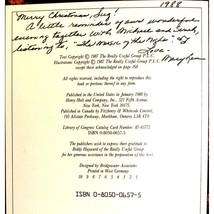 1988
Merry Christmas, Joy!
A little reminder of our wonderful
evening together with Michael and Sarah,
listening to, "The Music of the Night."
Love,
Mary
Text Copyright © 1987 The Really Useful Group P.L.C.
Illustrations Copyright © 1987 The Really Useful Group P.L.C.
except those acknowledged on page
All rights reserved, including the right to reproduce this
book or portions thereof in any form.
Published in the United States in January 1988 by
Henry Holt and Company, Inc., 521 Fifth Avenue,
New York, New York 10175.
Published in Canada by Fitzhenry & Whiteside Limited,
195 Allstate Parkway, Markham, Ontario L3R 4T8
Library of Congress Catalog Card Number: 87-45572
ISBN 0-8050-0657-5
The publishers wish to express their gratitude to
Biddy Hayward of the Really Useful Group for all her help.
Designed by Bridgewater Associates
Printed in West Germany
ISBN 0-8050-0657-5